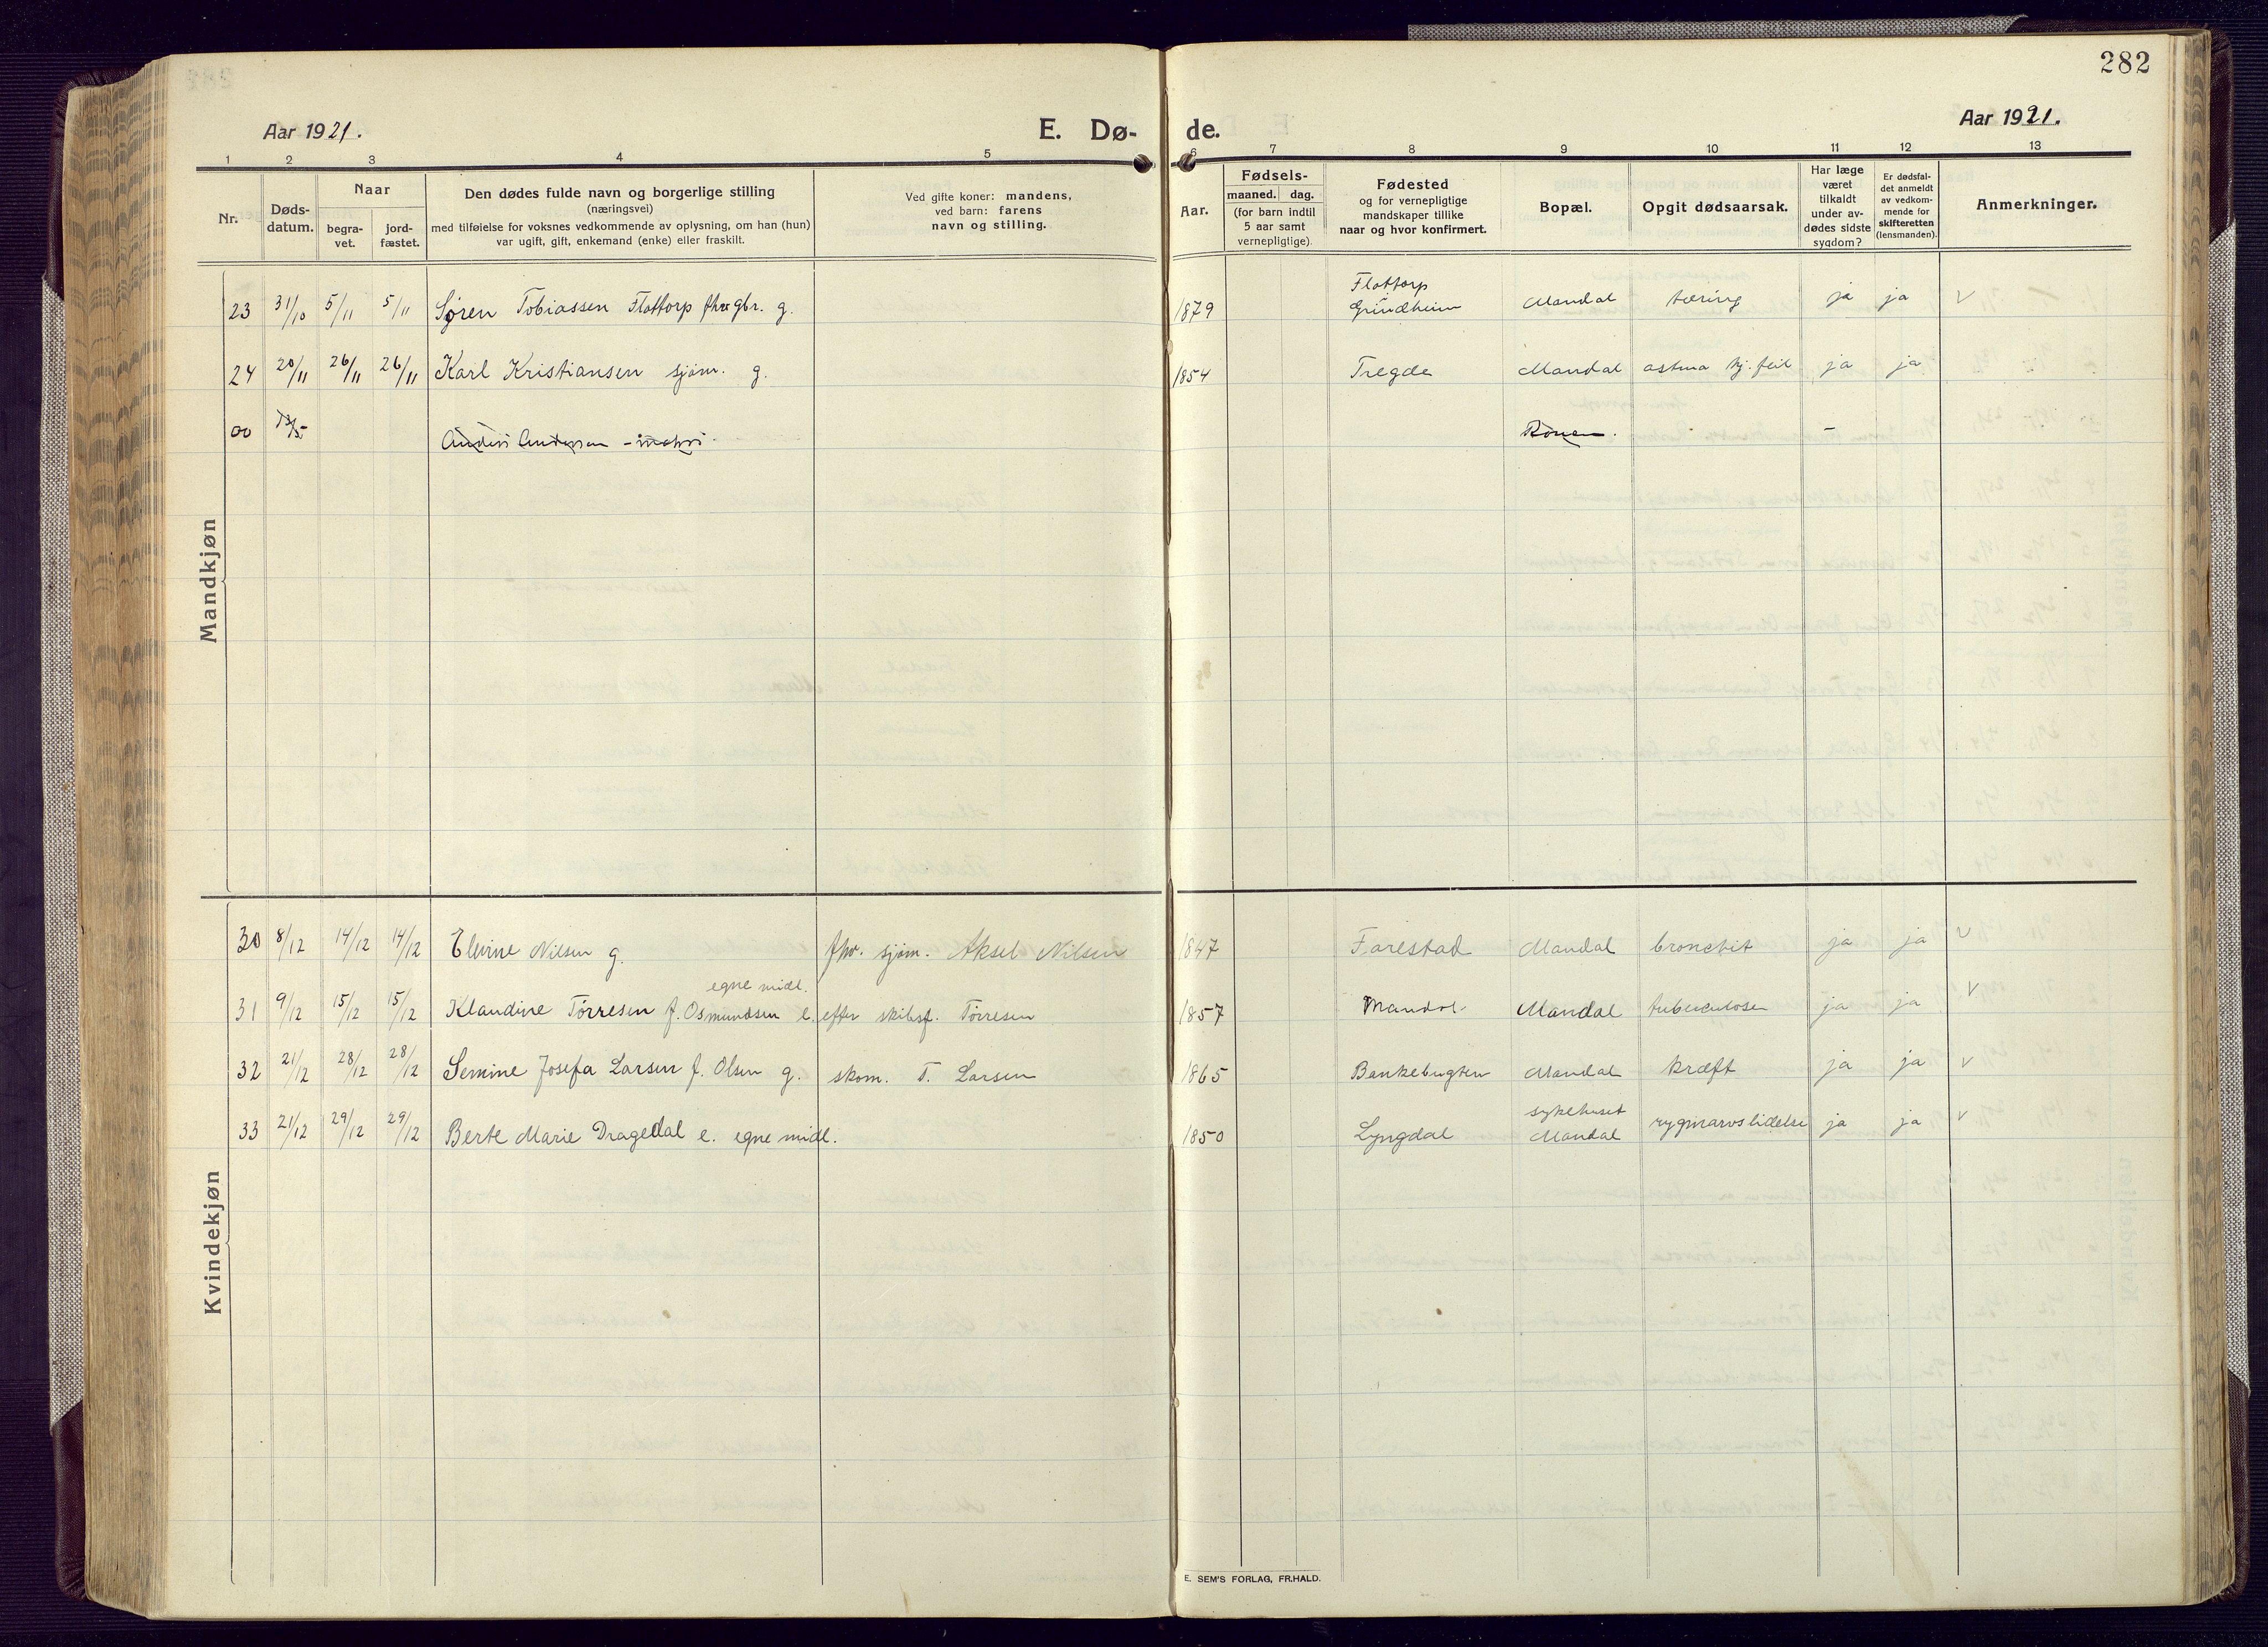 282
Aar 1921.
E. Dø-
de.
Aar 1921.
1 2 3 4 5 6 7 8 9 10 11 12 13
Nr.
Døds-
datum.
Naar
begra-
vet.
jord-
fæstet.
Den dødes fulde navn og borgerlige stilling
(næringsvei)
med tilføielse for voksnes vedkommende av oplysning, om han (hun)
var ugift, gift, enkemand (enke) eller fraskilt.
Ved gifte koner: mandens,
ved barn: farens
navn og stilling.
Aar.
Fødsels-
maaned. dag.
(for barn indtil
5 aar samt
vernepligtige).
Fødested
og for vernepligtige
mandskaper tillike
naar og hvor konfirmert.
Bopæl.
Opgit dødsaarsak.
Har læge
været
tilkaldt
under av-
dødes sidste
sygdom?
Er dødsfal-
det anmeldt
av vedkom-
mende for
skifteretten
(lensmanden).
Anmerkninger.
Mandkjøn
Flottorp
23 31/10 5/11 5/11 Søren Tobiassen Flottorp fhv gbr. g. 1879 Grindheim Mandal tæring ja ja V
24 20/11 26/11 26/11 Karl Kristiansen sjøm. g. 1854 Tregde Mandal astma hj. feil ja ja
00 13/5 Anders Andersen - matros. Rouen. -
Kvindekjøn
30 8/12 14/12 14/12 Elvine Nilsen g. fhv. sjøm. Aksel Nilsen 1847 Farestad Mandal bronchit ja ja V
egne midl.
31 9/12 15/12 15/12 Klaudine Tørresen f. Osmundsen e. efter skibsf. Tørresen 1857 Mandal Mandal tuberculose ja ja V
32 21/12 28/12 28/12 Semine Josefa Larsen f. Olsen g. skom. T. Larsen 1865 Bankebugten Mandal kræft ja ja V
sykehuset
33 21/12 29/12 29/12 Berte Marie Dragedal e. egne midl. 1850 Lyngdal Mandal rygmarvslidelse ja ja V
E. SEM'S FORLAG, FR.HALD.